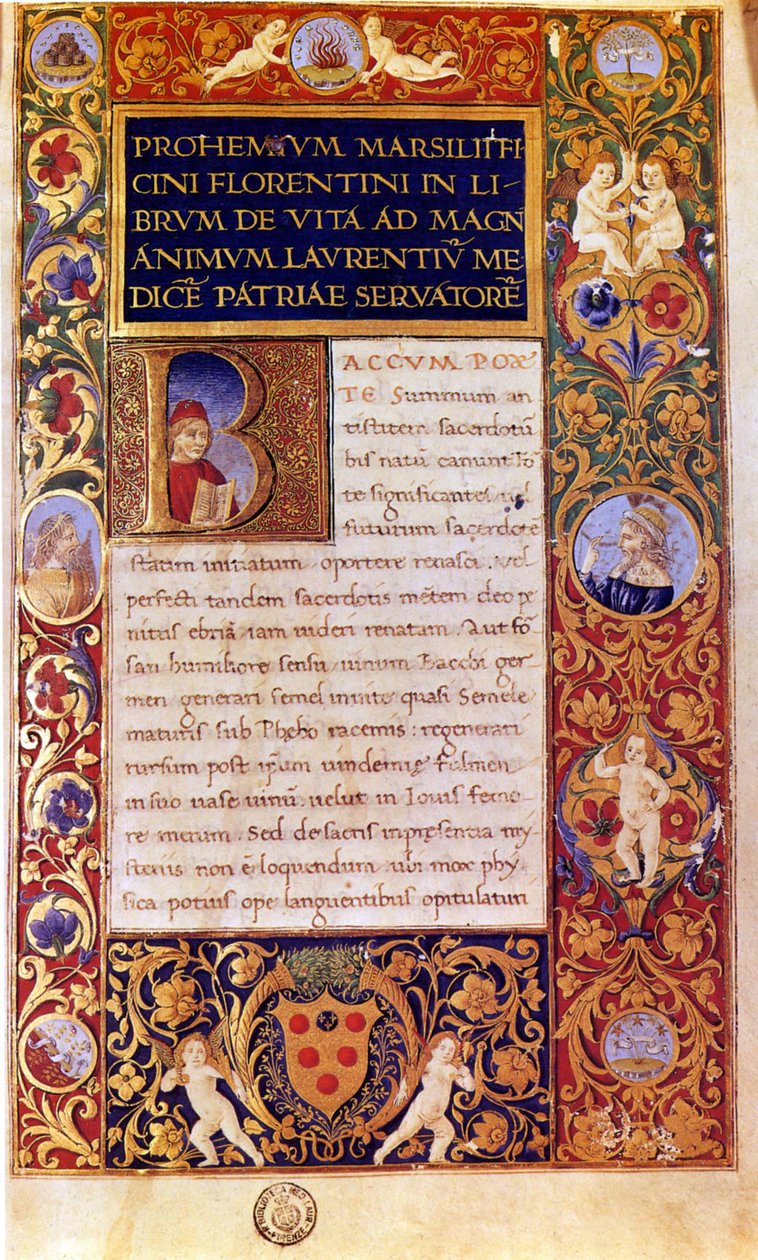 PROHEMIVM MARSILII FI
CINI FLORENTINI IN LI-
BRVM DE VITA AD MAGÑ
ANIMVM LAVRENTIV̄ ME
DICĒ PATRIAE SERVATORĒ
BACCVM POE
TE Summum an
tistitem sacerdotū
bis natū canunt fo
te significantes uel
futurum sacerdotē
statim initiatum oportere renasci. uel
perfecti tandem sacerdotis mētem deo pe
nitus ebriā iam uideri renatam. Aut for
san humiliore sensu uinum Bacchi ger
men generari semel in uite quasi Semele
maturis sub Phebo racemis: regenerari
rursum post ipsum uindemię fulmen
in suo uase uinū: uelut in Iouis femo
re merum. Sed de sacris in pręsentia my-
steriis non ē loquendum ubi mox phy
sica potius ope languentibus opitulaturi
BIBLIOTECA MED. LAUR. FIRENZE